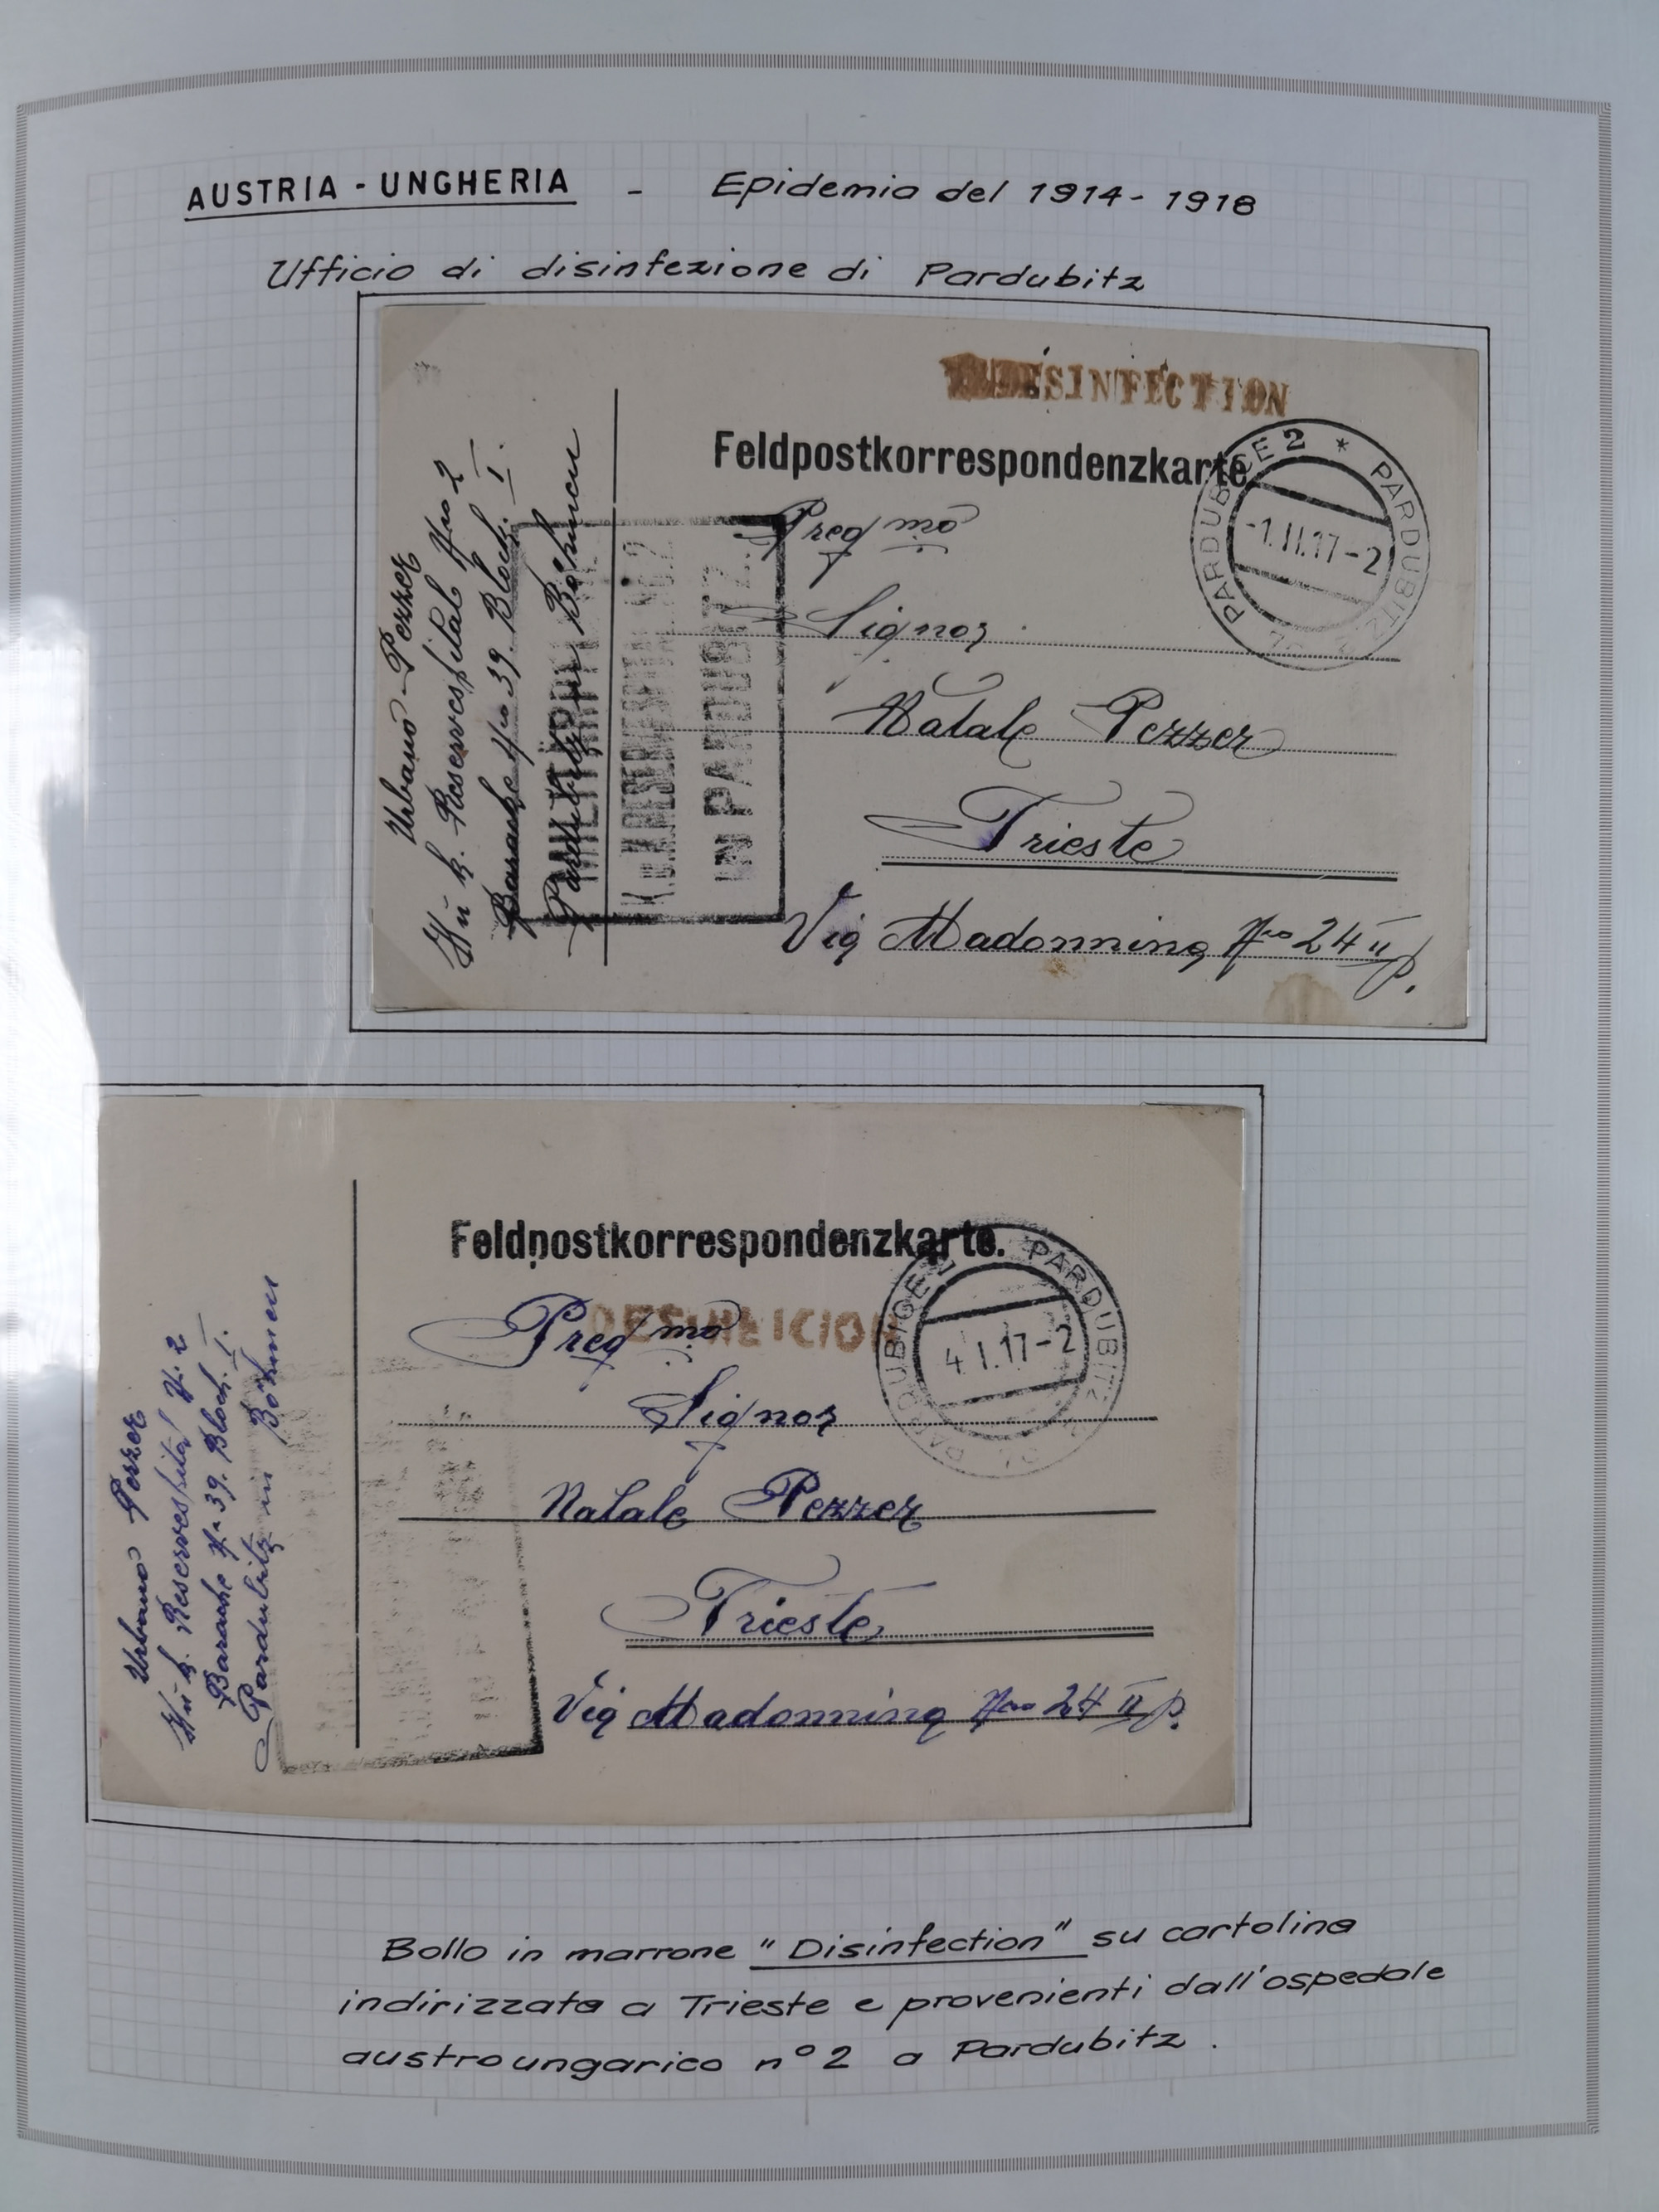 AUSTRIA - UNGHERIA - Epidemia del 1914 - 1918
Ufficio di disinfezione di Pardubitz
DESINFECTION
Feldpostkorrespondenzkarte
PARDUBICE 2 * PARDUBITZ 2
-1.II.17-2
Urbano Pezzer
K. u. k. Reservespital Nro 2
Barache Nro 39. Block. I.
Pardubitz in Böhmen
MILITÄRPFLEGE
K.u.K. RESERVESPITAL No 2
IN PARDUBITZ
Pregmo
Signor
Natale Pezzer
Trieste
Via Madonnina Nro 24 II p.
Feldpostkorrespondenzkarte.
PARDUBICE 2 PARDUBITZ 2
4.I.17-2
Urbano Pezzer
K. u. k. Reservespital N. 2
Barache No 39. Block. I.
Pardubitz in Böhmen
Pregmo
Signor
Natale Pezzer
Trieste
Via Madonnina Nro 24 II p.
Bollo in marrone "Disinfection" su cartoline
indirizzate a Trieste e provenienti dall'ospedale
austroungarico n° 2 a Pardubitz.